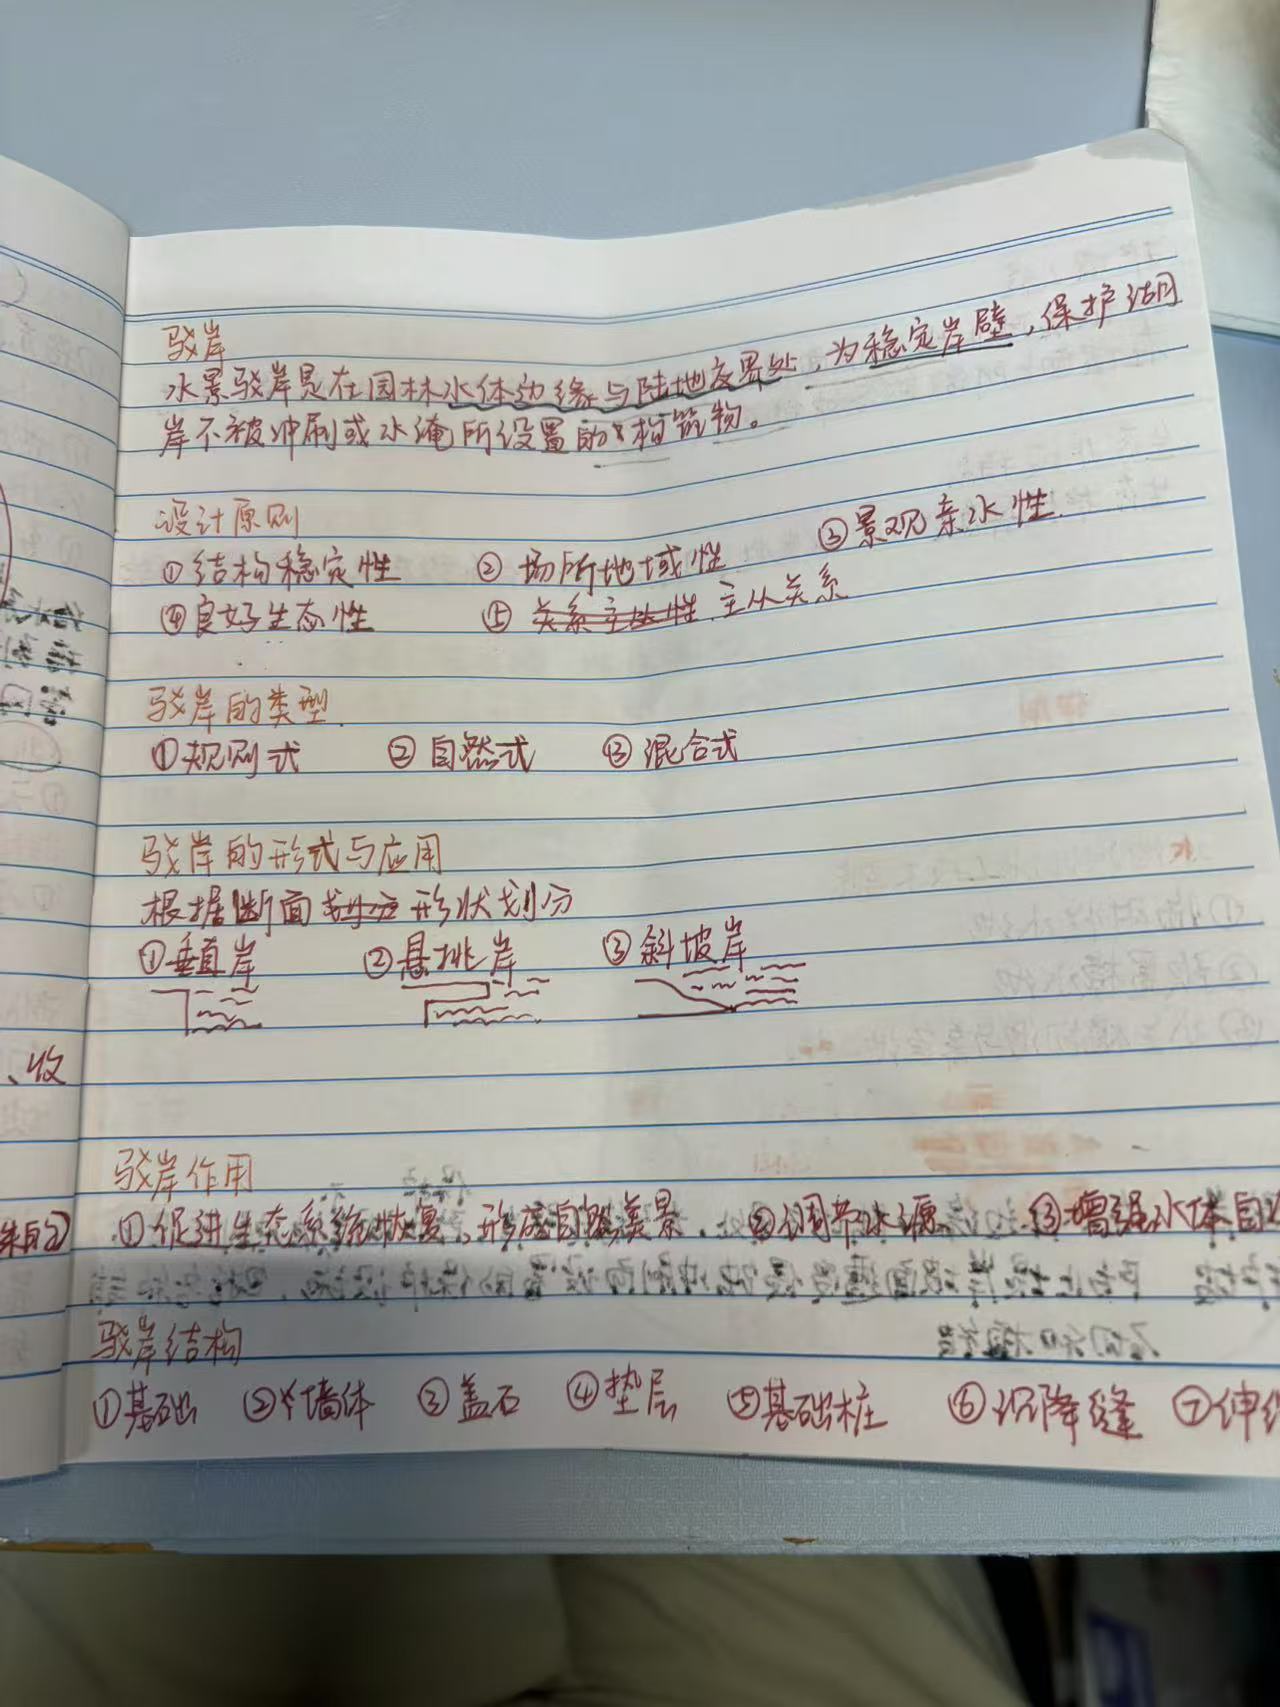 驳岸
水景驳岸是在园林水体边缘与陆地交界处，为稳定岸壁，保护湖
岸不被冲刷或水淹所设置的构筑物。
设计原则
①结构稳定性 ②场所地域性 ③景观亲水性.
④良好生态性 ⑤关系主从性.主从关系
驳岸的类型.
①规则式 ②自然式 ③混合式
驳岸的形式与应用
根据断面划分形状划分
①垂直岸 ②悬挑岸 ③斜坡岸
、收
驳岸作用
①促进生态系统恢复，形成自然美景. ②调节水源 ③增强水体自
驳岸结构
①基础 ②墙体 ③盖石 ④垫层 ⑤基础桩 ⑥沉降缝 ⑦伸